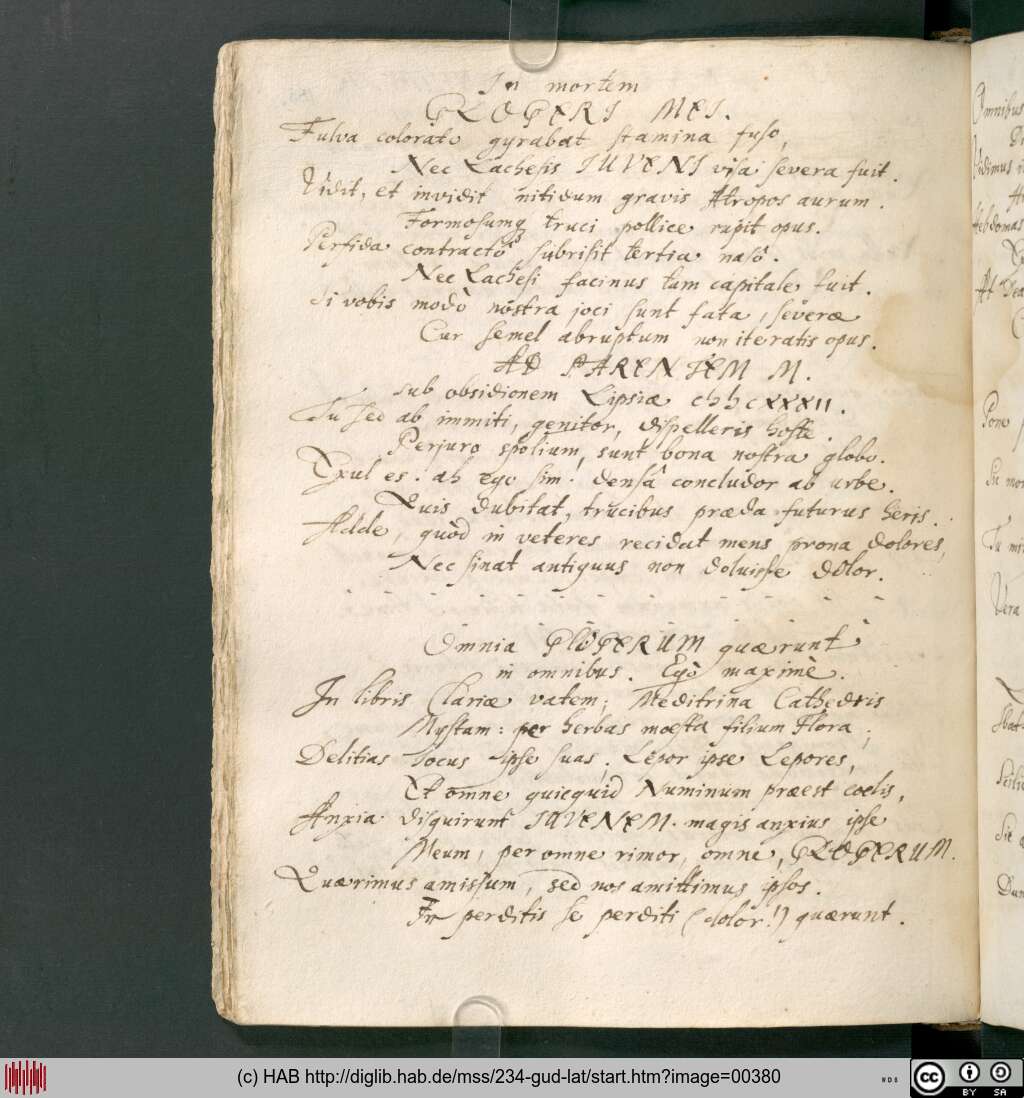 In mortem
GLOGERI MEI.
Fulva colorato gyrabat stamina fuso,
Nec Lachesis IUVENI visa severa fuit.
Vidit, et invidit nitidum gravis Atropos aurum.
Formosumq truci pollice rupit opus.
Perfida contractô subrisit tertia nasô.
Nec Lachesi facinus tam capitale fuit.
Si vobis modò nostra joci sunt fata, severæ
Cur semel abruptum non iteratis opus.
AD PARENTEM M.
sub obsidionem Lipsiæ
Tu sed ab immiti, genitor, dispelleris hoste.
Perjuro spolium, sunt bona nostra globo.
Exul es. ah ego sim. densâ concludor ab urbe.
Quis dubitat, trucibus præda futurus heris.
Adde, quòd in veteres recidat mens prona dolores,
Nec sinat antiquus non doluisse dolor.
- - - - - - - - - -
Omnia GLOGERUM quærunt
in omnibus. Egò maximè.
In libris Clariæ vatem; Meditrina Cathedris
Mystam: per herbas mœsta filium Flora;
Delitias Jocus ipse suas. Lepor ipse Lepores,
Et omne quicquid Numinum præest cœlis,
Anxia disquirunt IUVENEM. magis anxius ipse
Meum, per omne rimor, omne, GLOGERUM.
Quærimus amissum, sed nos amittimus ipsos.
In perditis se perditi (dolor!) quærunt.
Omnibus
Vidimus
Hebdomas
At
Pone
In
Tu
Vera
Sic
Dum
(c) HAB http://diglib.hab.de/mss/234-gud-lat/start.htm?image=00380
cc BY SA